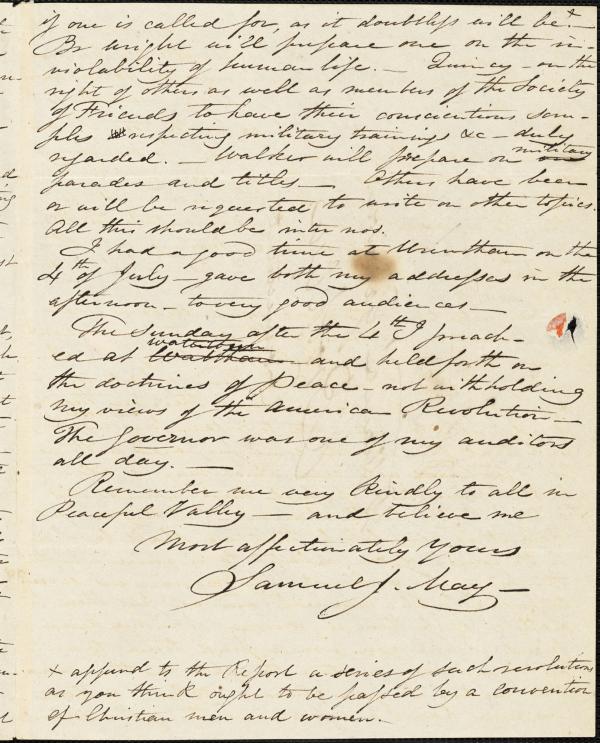 if one is called for, as it doubtless will be. x
Bs wright will prepare one on the in-
violability of human life. — Quincy – on the
right of others as well as members of the Society
of Friends to have their conscientious scru-
ples respecting military trainings &c – duly
regarded. — Walker will prepare on military
parades and titles — Others have been
or will be requested to write on other topics.
All this should be inter nos.
I had a good time at Wrentham on the
4th of July – gave both my addresses in the
afternoon – to very good audiences —
The sunday after the 4th I preach-
ed at Waltham and held forth on
the doctrines of Peace – not withholding
my views of the American Revolution —
The Governor was one of my auditors
all day. —
Remember me very kindly to all in
Peaceful Valley — and believe me
Most affectionately Yours
Samuel J. May —
x append to the Report a series of such resolutions
as you think ought to be passed by a convention
of Christian men and women.